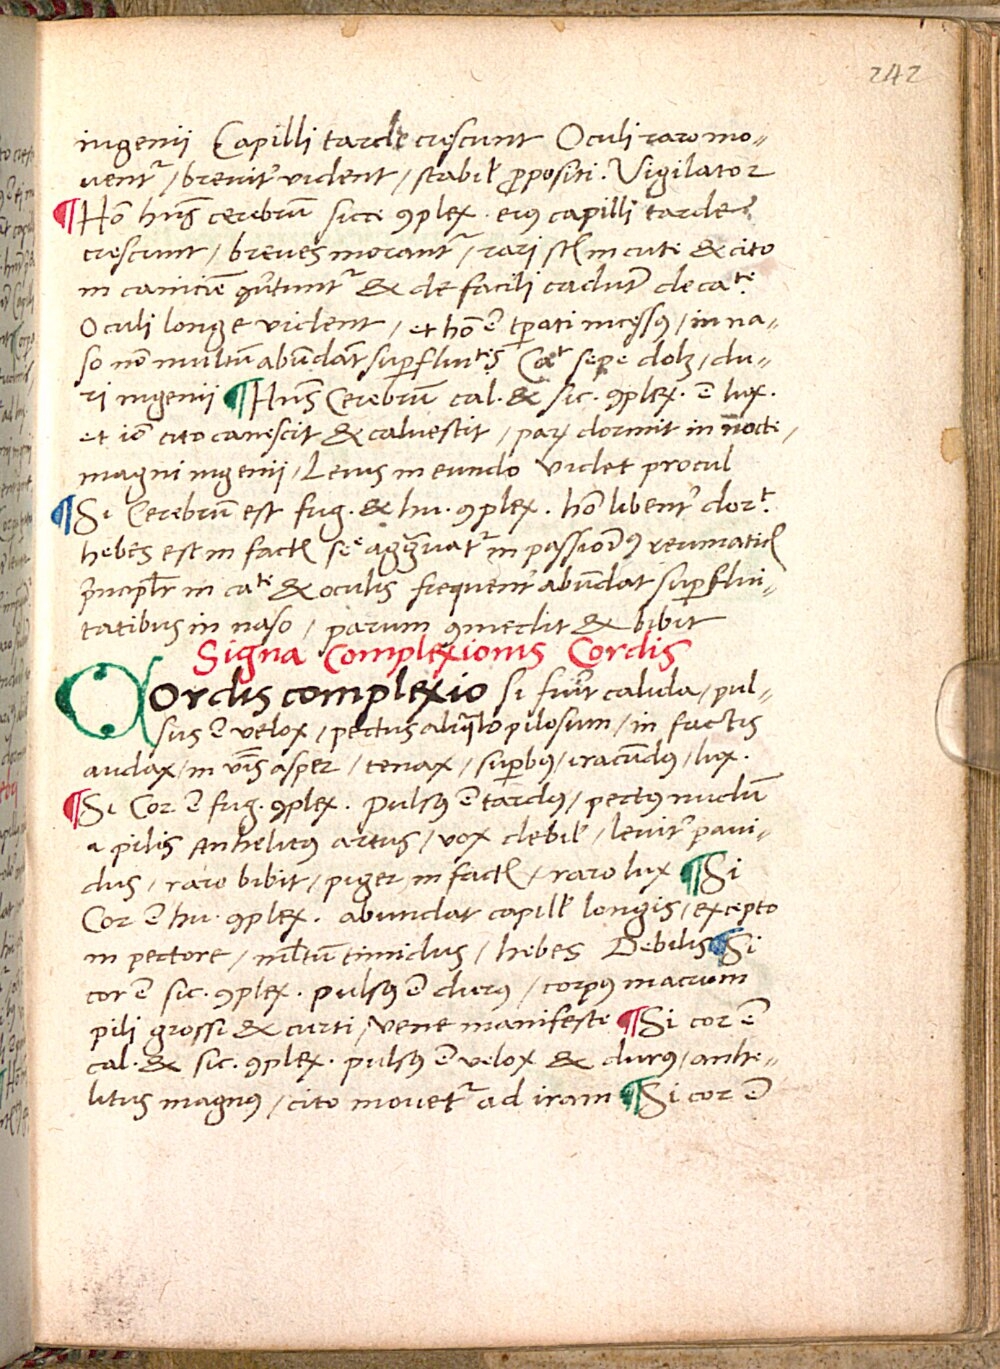 242
ingenii Capilli tarde crescunt Oculi raro mo=
uentʳ / breuit' vident / stabil' ꝓpositi. Vigilator
¶ Hō hn̄s cerebrū sicce ꝯplex. eiꝰ capilli tarde
crescunt / breues morantʳ / rari st̄ in cute & cito
in caniciē ꝯu'tuntʳ & de facili cadūt' de caᵗᵉ.
Oculi longe vident / et hō ē tꝑati incęssꝰ / in na=
so nō multū abūdāt suꝑfluiᵗᵉs Caᵗ sepe dolꝫ / du=
ri ingenii ¶ Hn̄s Cerebrū cal. & sic. ꝯplex. ē lux.
et iō cito canescit & caluescit / paꝝ dormit in nocte /
magni ingenii / Leuis in eundo videt procul
¶ Si Cerebrū est frig. & hu. ꝯplex. hō libent' dorᵗ.
hebes est in fact
in caᵗᵉ & oculis frequent' abūdat suꝑflui=
tatibus in naso / parum ꝯmedit & bibit
Signa Complexionis Cordis
Cordis complexio si fu'it calida / pul=
sus ē velox / pectus pilosum / in factis
audax / in v'bis asper / tenax / suꝑbꝰ / iracūdꝰ / lux.
¶ Si Cor ē frig. ꝯplex. Pulsꝰ ē tardꝰ / pectꝰ nudū
a pilis Anhelitꝰ artus / vox debil' / leuit' paui=
dus / raro bibit / piger in fact' / raro lux ¶ Si
Cor ē hu. ꝯplex. abundat capill' longis / excepto
in pectore / ml'tū timidus / hebes Debilis ¶ Si
cor ē sic. ꝯplex. pulsꝰ ē durꝰ / corpꝰ macrum
pili grossi & curti / vene manifeste ¶ Si cor ē
cal. & sic. ꝯplex. pulsꝰ ē velox & durꝰ / anhe=
litus magnꝰ / cito mouetʳ ad iram ¶ Si cor ē